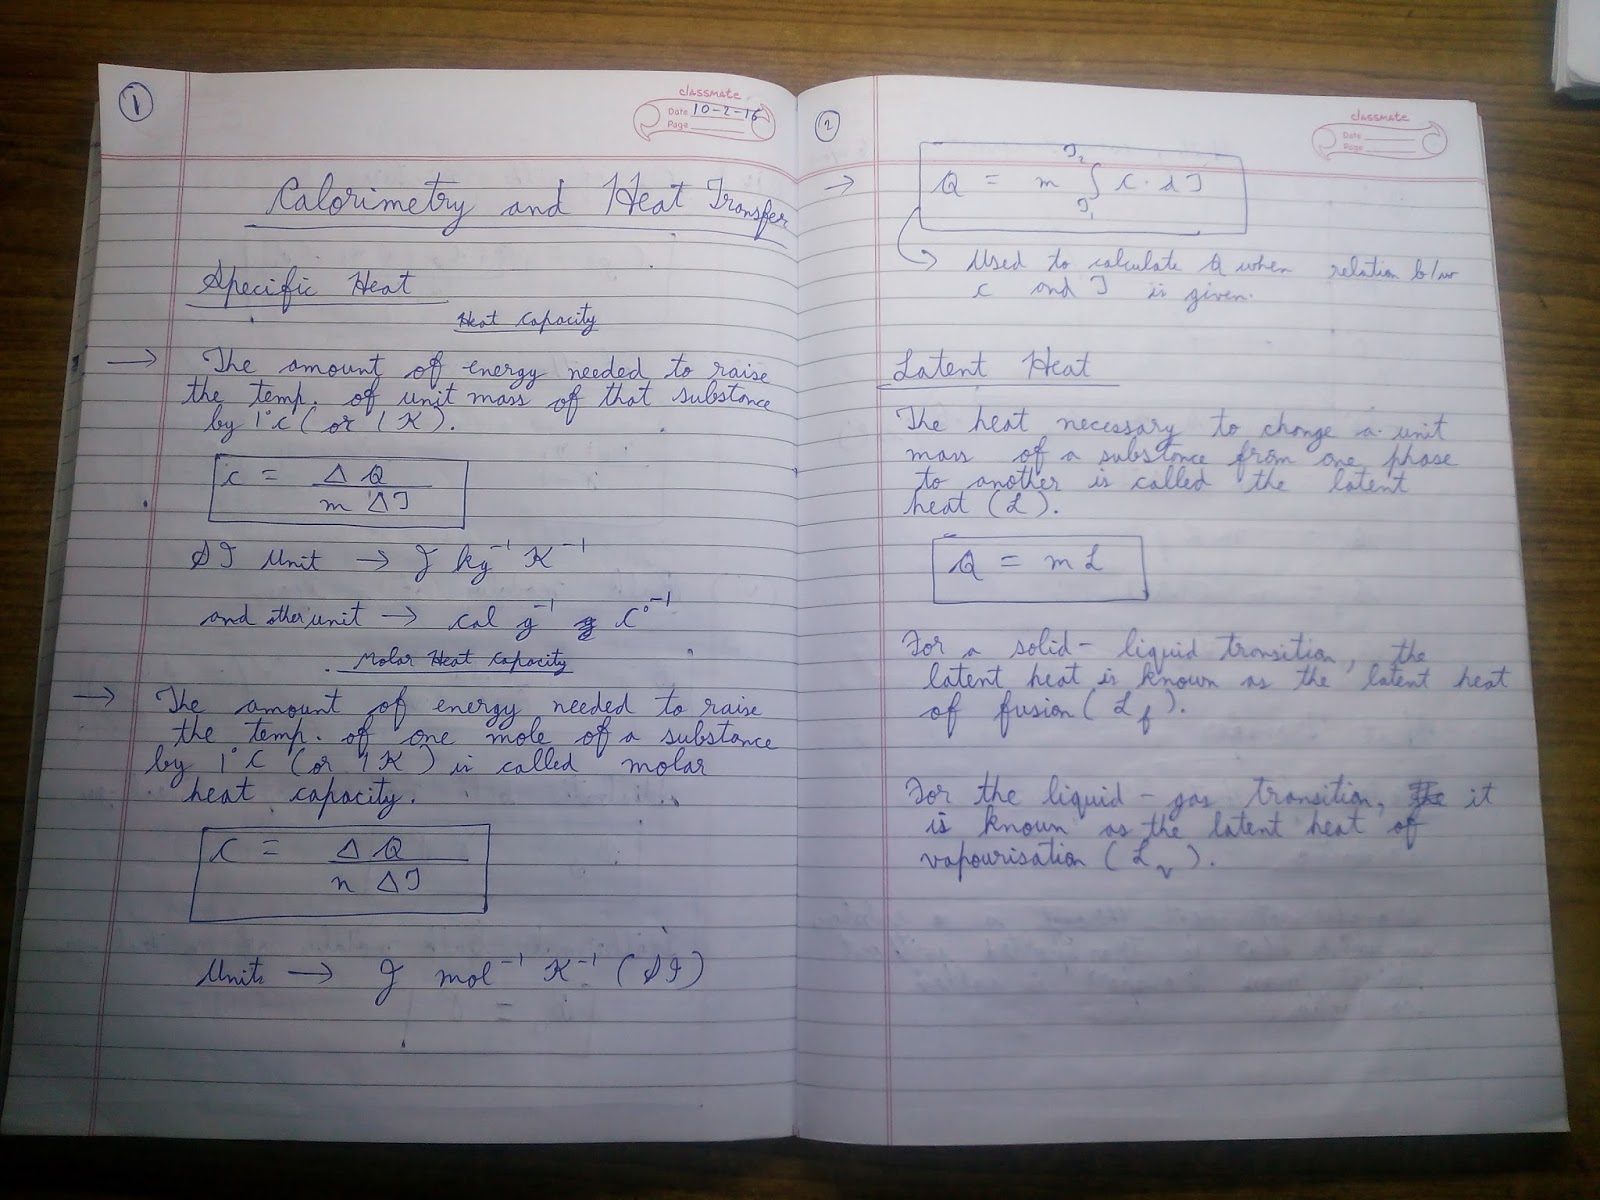 1
classmate
Date 10-2-16
Page
Calorimetry and Heat Transfer
Specific Heat
Heat Capacity
→ The amount of energy needed to raise
the temp. of unit mass of that substance
by 1°C (or 1 K).
c = ΔQ / m ΔT
SI Unit → J kg⁻¹ K⁻¹
and other unit → cal g⁻¹ C°⁻¹
Molar Heat Capacity
→ The amount of energy needed to raise
the temp. of one mole of a substance
by 1°C (or 1K) is called molar
heat capacity.
C = ΔQ / n ΔT
Units → J mol⁻¹ K⁻¹ (SI)
2
classmate
Date
Page
→ Q = m ∫ C. dT
T₂
T₁
Used to calculate Q when relation b/w
c and T is given.
Latent Heat
The heat necessary to change a unit
mass of a substance from one phase
to another is called the latent
heat (L).
Q = mL
For a solid - liquid transition, the
latent heat is known as the latent heat
of fusion (Lf).
For the liquid - gas transition, it
is known as the latent heat of
vapourisation (Lv).